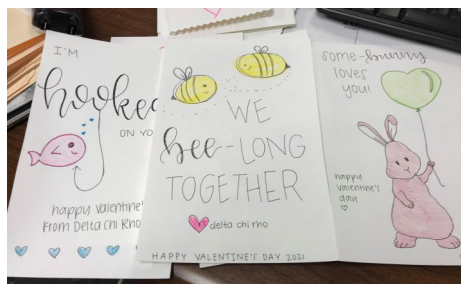 I'M
hooked
ON YO
happy valentine's
From Delta Chi Rho
WE
bee-LONG
TOGETHER
delta chi rho
HAPPY VALENTINE'S DAY 2021
some-bunny
loves
you!
happy
valentine's
day